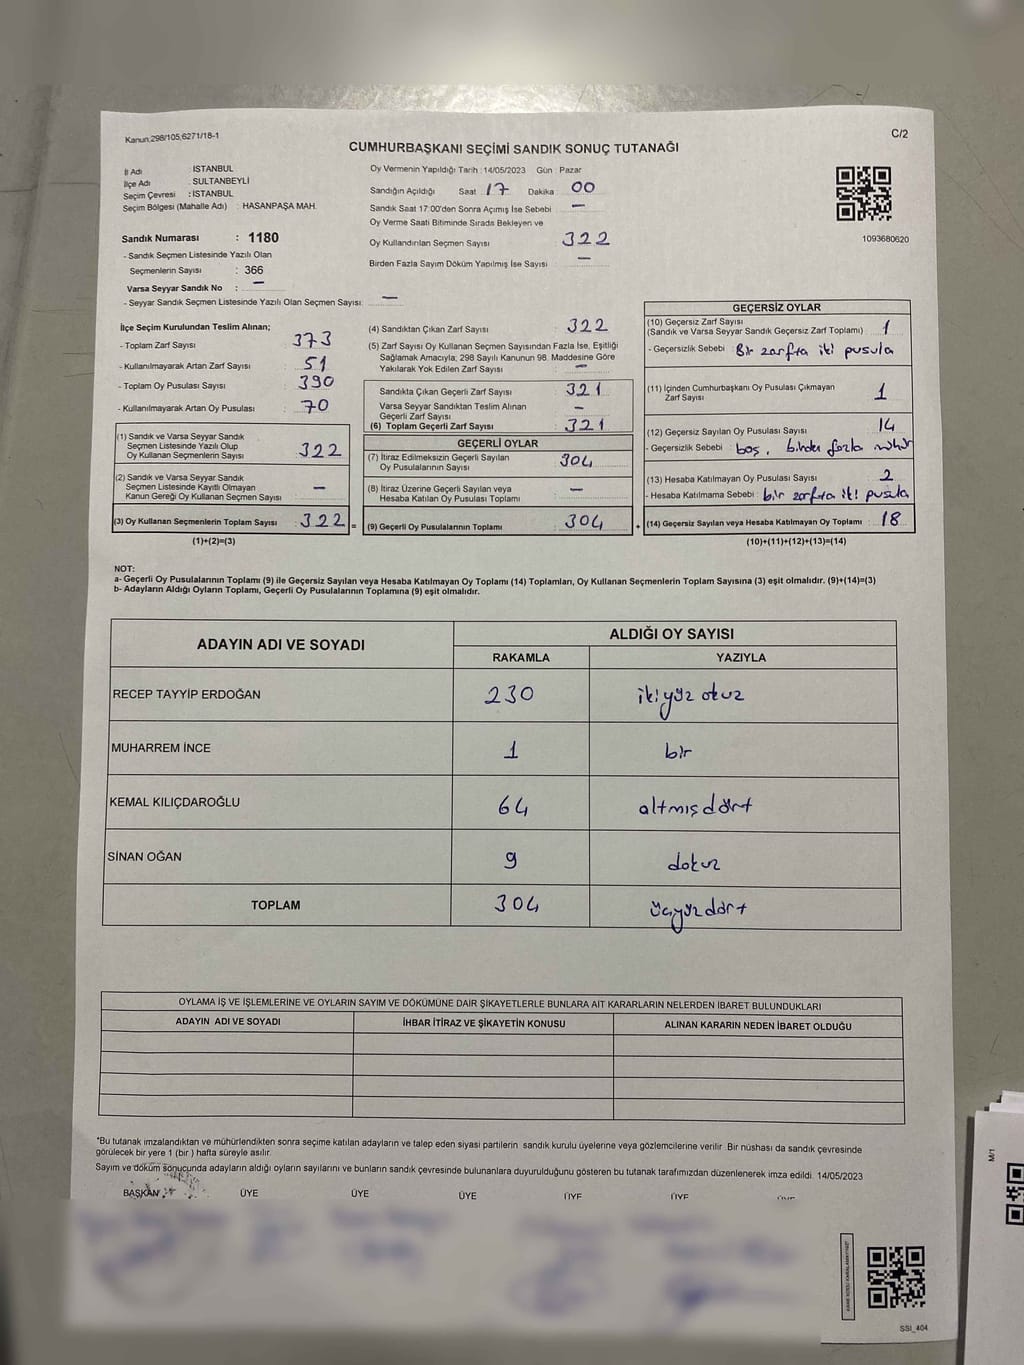 Kanun:298/105,6271/18-1
C/2
CUMHURBAŞKANI SEÇİMİ SANDIK SONUÇ TUTANAĞI
İl Adı : İSTANBUL
İlçe Adı : SULTANBEYLİ
Seçim Çevresi : İSTANBUL
Seçim Bölgesi (Mahalle Adı) : HASANPAŞA MAH.
Sandık Numarası : 1180
- Sandık Seçmen Listesinde Yazılı Olan
Seçmenlerin Sayısı : 366
Varsa Seyyar Sandık No : —
- Seyyar Sandık Seçmen Listesinde Yazılı Olan Seçmen Sayısı: —
Oy Vermenin Yapıldığı Tarih : 14/05/2023 Gün : Pazar
Sandığın Açıldığı Saat 17 Dakika 00
Sandık Saat 17:00'den Sonra Açımış İse Sebebi —
Oy Verme Saati Bitiminde Sırada Bekleyen ve
Oy Kullandırılan Seçmen Sayısı 322
Birden Fazla Sayım Döküm Yapılmış İse Sayısı —
1093680620
İlçe Seçim Kurulundan Teslim Alınan;
- Toplam Zarf Sayısı : 373
- Kullanılmayarak Artan Zarf Sayısı : 51
- Toplam Oy Pusulası Sayısı : 390
- Kullanılmayarak Artan Oy Pusulası : 70
(1) Sandık ve Varsa Seyyar Sandık
Seçmen Listesinde Yazılı Olup
Oy Kullanan Seçmenlerin Sayısı : 322
(2) Sandık ve Varsa Seyyar Sandık
Seçmen Listesinde Kayıtlı Olmayan
Kanun Gereği Oy Kullanan Seçmen Sayısı : —
(3) Oy Kullanan Seçmenlerin Toplam Sayısı : 322 =
(1)+(2)=(3)
(4) Sandıktan Çıkan Zarf Sayısı : 322
(5) Zarf Sayısı Oy Kullanan Seçmen Sayısından Fazla İse, Eşitliği
Sağlamak Amacıyla; 298 Sayılı Kanunun 98. Maddesine Göre
Yakılarak Yok Edilen Zarf Sayısı : —
Sandıkta Çıkan Geçerli Zarf Sayısı : 321
Varsa Seyyar Sandıktan Teslim Alınan
Geçerli Zarf Sayısı : —
(6) Toplam Geçerli Zarf Sayısı : 321
GEÇERLİ OYLAR
(7) İtiraz Edilmeksizin Geçerli Sayılan
Oy Pusulalarının Sayısı : 304
(8) İtiraz Üzerine Geçerli Sayılan veya
Hesaba Katılan Oy Pusulası Toplamı : —
(9) Geçerli Oy Pusulalarının Toplamı : 304 +
GEÇERSİZ OYLAR
(10) Geçersiz Zarf Sayısı
(Sandık ve Varsa Seyyar Sandık Geçersiz Zarf Toplamı) : 1
- Geçersizlik Sebebi : Bir zarfta iki pusula
(11) İçinden Cumhurbaşkanı Oy Pusulası Çıkmayan
Zarf Sayısı : 1
(12) Geçersiz Sayılan Oy Pusulası Sayısı : 14
- Geçersizlik Sebebi : boş, birden fazla mühür
(13) Hesaba Katılmayan Oy Pusulası Sayısı : 2
- Hesaba Katılmama Sebebi : bir zarfta iki pusula
(14) Geçersiz Sayılan veya Hesaba Katılmayan Oy Toplamı : 18
(10)+(11)+(12)+(13)=(14)
NOT:
a- Geçerli Oy Pusulalarının Toplamı (9) ile Geçersiz Sayılan veya Hesaba Katılmayan Oy Toplamı (14) Toplamları, Oy Kullanan Seçmenlerin Toplam Sayısına (3) eşit olmalıdır. (9)+(14)=(3)
b- Adayların Aldığı Oyların Toplamı, Geçerli Oy Pusulalarının Toplamına (9) eşit olmalıdır.
ADAYIN ADI VE SOYADI ALDIĞI OY SAYISI
RAKAMLA YAZIYLA
RECEP TAYYİP ERDOĞAN 230 ikiyüz otuz
MUHARREM İNCE 1 bir
KEMAL KILIÇDAROĞLU 64 altmışdört
SİNAN OĞAN 9 dokuz
TOPLAM 304 üçyüzdört
OYLAMA İŞ VE İŞLEMLERİNE VE OYLARIN SAYIM VE DÖKÜMÜNE DAİR ŞİKAYETLERLE BUNLARA AİT KARARLARIN NELERDEN İBARET BULUNDUKLARI
ADAYIN ADI VE SOYADI İHBAR İTİRAZ VE ŞİKAYETİN KONUSU ALINAN KARARIN NEDEN İBARET OLDUĞU
*Bu tutanak imzalandıktan ve mühürlendikten sonra seçime katılan adayların ve talep eden siyasi partilerin sandık kurulu üyelerine veya gözlemcilerine verilir. Bir nüshası da sandık çevresinde
görülecek bir yere 1 (bir) hafta süreyle asılır.
Sayım ve döküm sonucunda adayların aldığı oyların sayılarını ve bunların sandık çevresinde bulunanlara duyurulduğunu gösteren bu tutanak tarafımızdan düzenlenerek imza edildi. 14/05/2023
BAŞKAN ÜYE ÜYE ÜYE ÜYE ÜYE
SSI_404
M/1